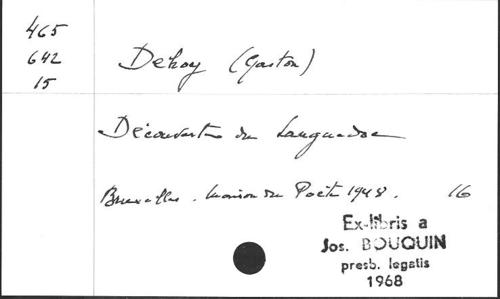 465
642
15
Dehoy (Gaston)
Découverte du Languedoc
Bruxelles. Maison du Poète 1948. 16
Ex-libris a
Jos. BOUQUIN
presb. legatis
1968